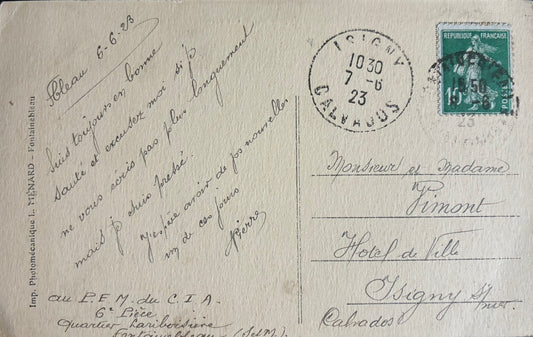 Imp. Photomécanique L. MÉNARD — Fontainebleau
Fbleau 6-6-23
Suis toujours en bonne
santé et excusez moi si je
ne vous écris pas plus longuement
mais je suis pressé.
J'espère avoir de vos nouvelles
un de ces jours
Pierre
au P.E.M. du C.I.A.
6e Pièce
Quartier Lariboisière
Fontainebleau (S et M)
ISIGNY
10 30
7 - 6
23
CALVADOS
REPUBLIQUE FRANÇAISE
POSTES
Monsieur et Madame
Pimont
Hotel de Ville
Isigny s/mer
Calvados